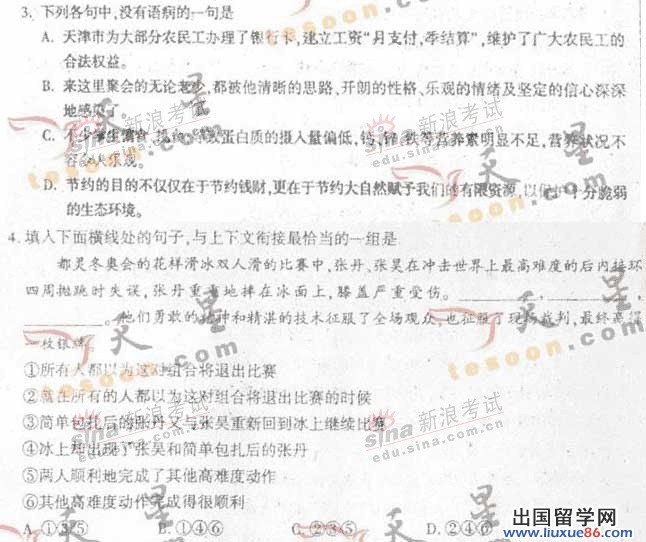 3. 下列各句中,没有语病的一句是
A. 天津市为大部分农民工办理了银行卡,建立工资“月支付,季结算”,维护了广大农民工的
合法权益。
B. 来这里聚会的无论老少,都被他清晰的思路,开朗的性格、乐观的情绪及坚定的信心深深
地感染了
C. 不少学生偏食、挑食,导致蛋白质的摄入量偏低,钙、锌、铁等营养素明显不足,营养状况不
容令人乐观。
D. 节约的目的不仅仅在于节约钱财,更在于节约大自然赋予我们的有限资源,以保护十分脆弱
的生态环境。
4. 填入下面横线处的句子,与上下文衔接最恰当的一组是
都灵冬奥会的花样滑冰双人滑的比赛中,张丹、张昊在冲击世界上最高难度的后内接环
四周抛跳时失误,张丹重重地摔在冰面上,膝盖严重受伤。
。他们勇敢的精神和精湛的技术征服了全场观众,也征服了现场裁判,最终赢得
一枚银牌
①所有人都以为这对组合将退出比赛
②就在所有的人都以为这对组合将退出比赛的时候
③简单包扎后的张丹又与张昊重新回到冰上继续比赛
④冰上却出现了张昊和简单包扎后的张丹
⑤两人顺利地完成了其他高难度动作
⑥其他高难度动作完成得很顺利
A. ①③⑤ B. ①④⑥ C. ②③⑤ D. ②④⑥
天星
tesoon.com
sina 新浪考试
edu.sina.com.cn
出国留学网
www.liuxue86.com